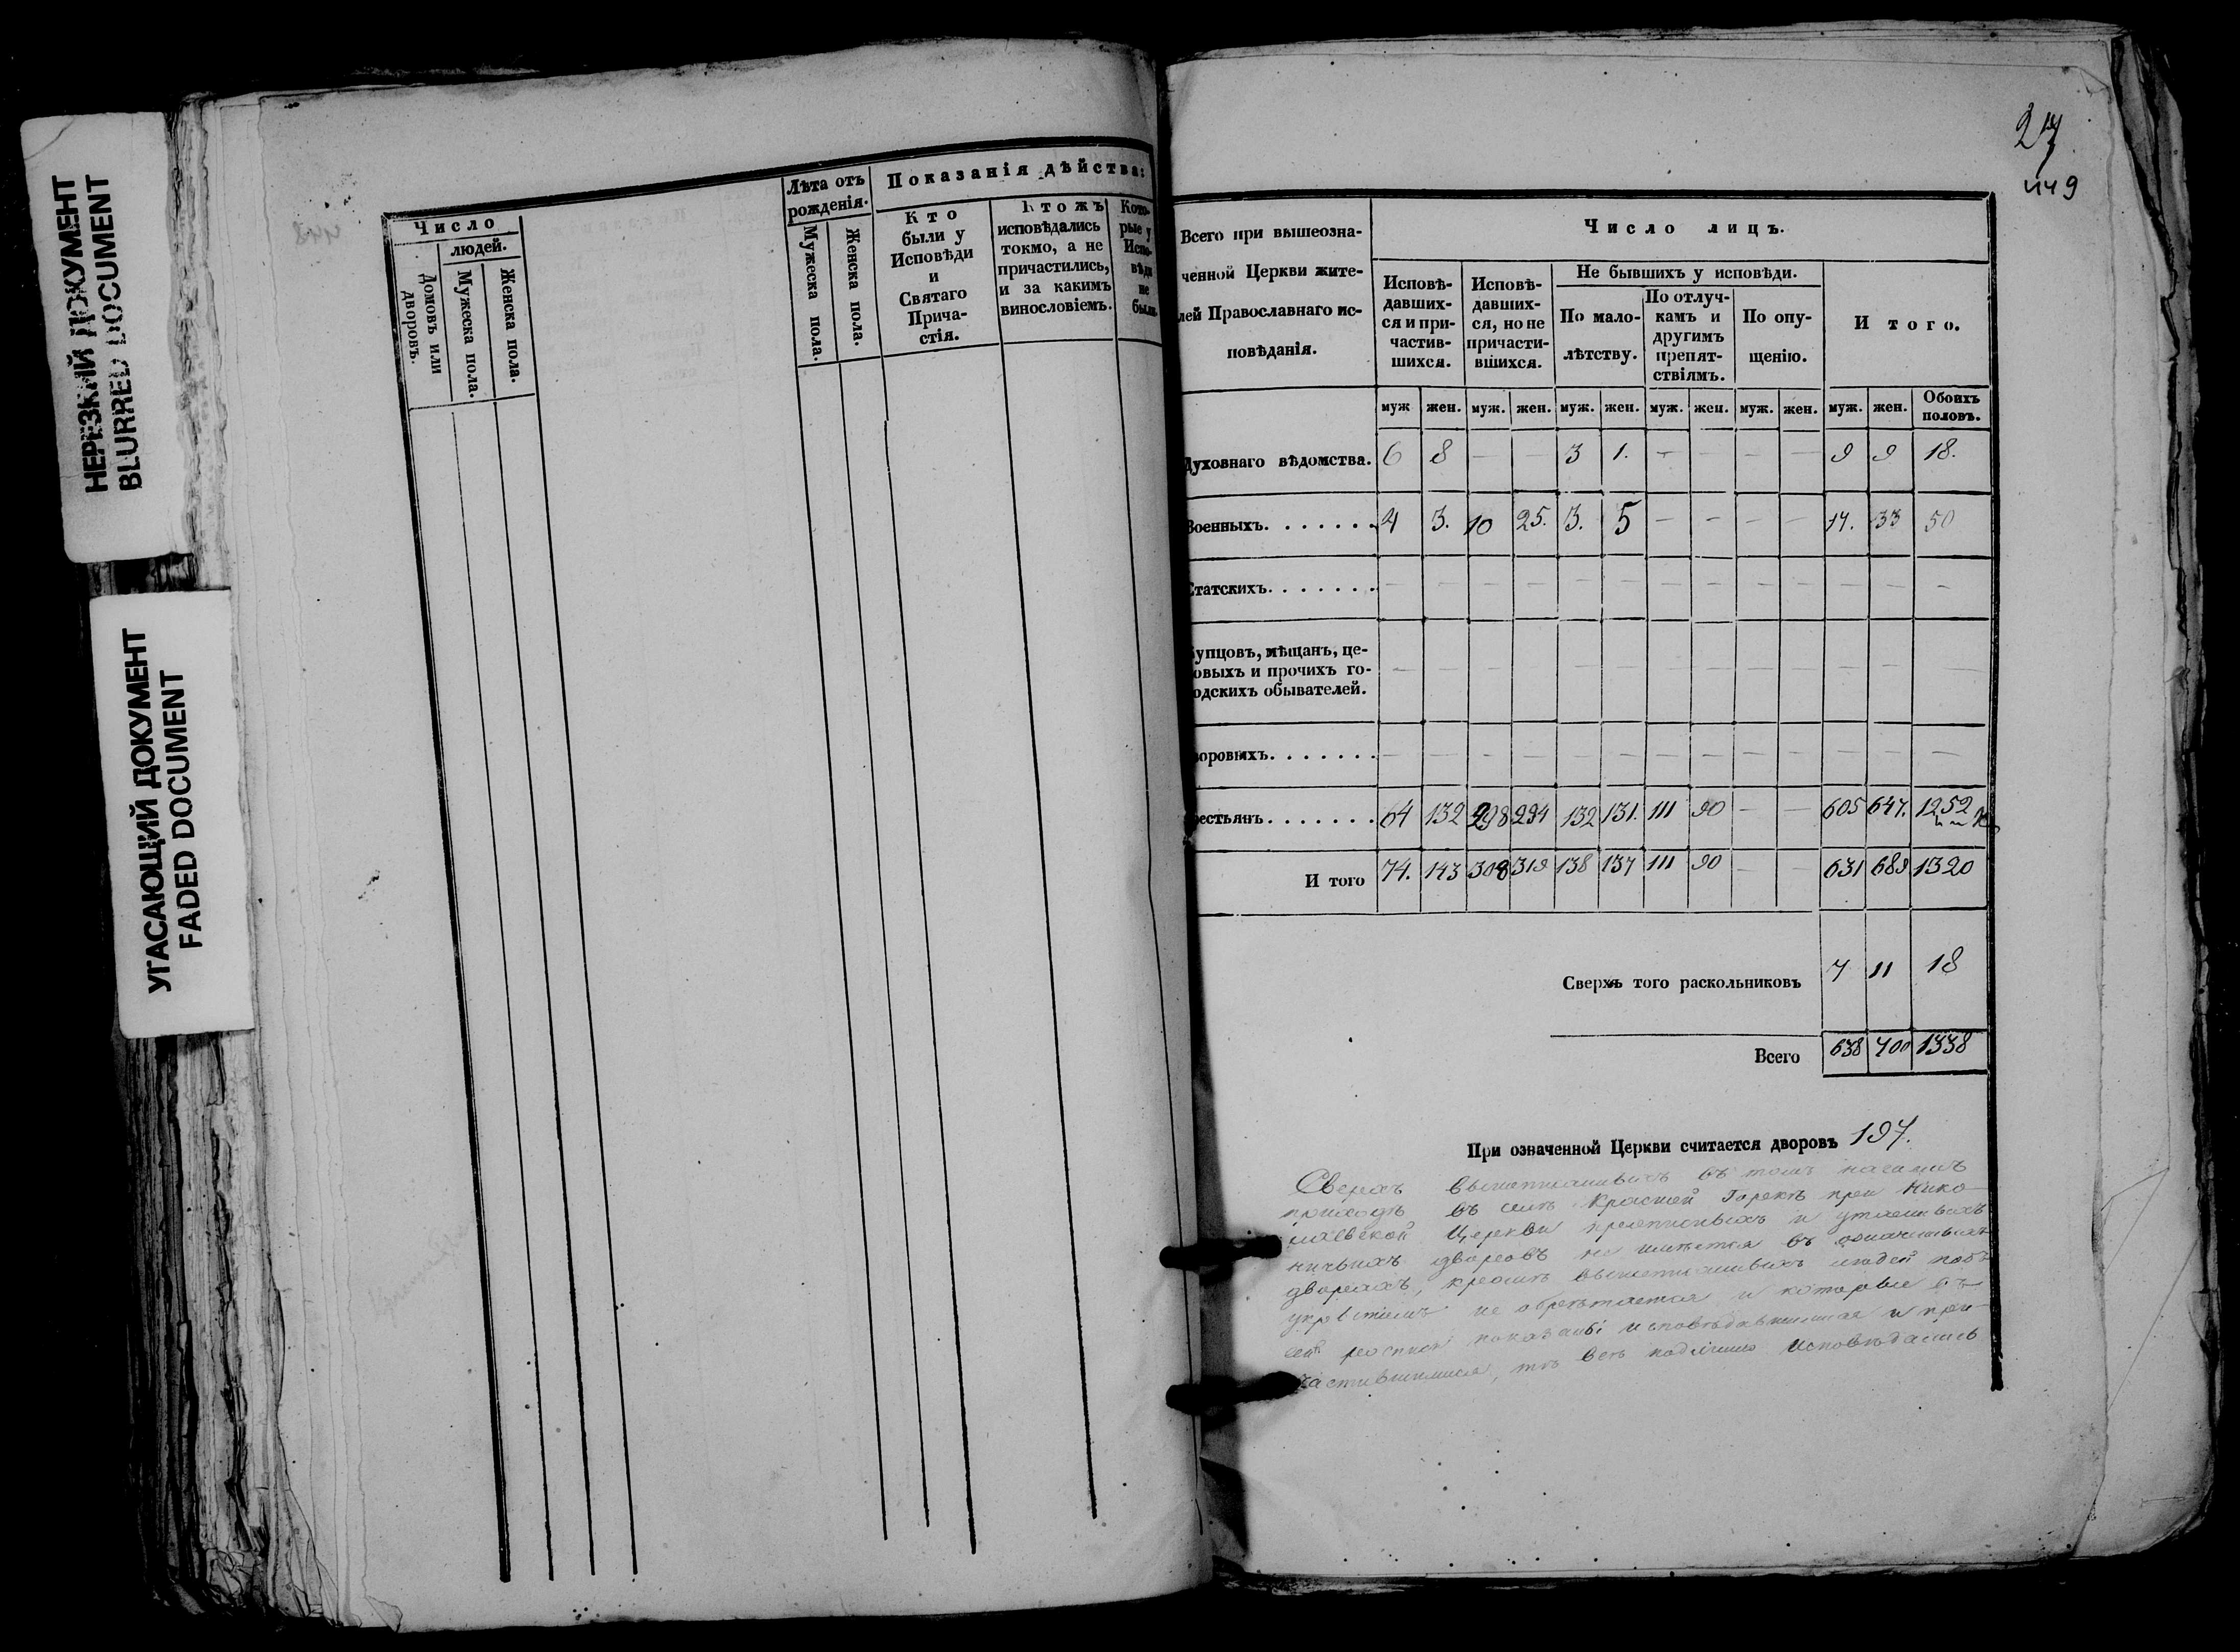 НЕРЕЗКИЙ ДОКУМЕНТ
BLURRED DOCUMENT
УГАСАЮЩИЙ ДОКУМЕНТ
FADED DOCUMENT
Число
людей.
Домовъ или дворовъ.
Мужеска пола.
Женска пола.
Лѣта отъ рожденія.
Мужеска пола.
Женска пола.
Показанія дѣйства:
Кто были у Исповѣди и Святаго Прича-стія.
Ктожъ исповѣдались токмо, а не причастились, и за какимъ винословіемъ.
Кото-рые у Испо-вѣди не были.
27
449
Всего при вышеозна-
ченной Церкви жите-
лей Православнаго ис-
повѣданія.
Число лицъ.
Исповѣ-давших-ся и при-частив-шихся.
Исповѣ-давших-ся, но не причасти-вшихся.
Не бывшихъ у исповѣди.
По мало-лѣтству.
По отлуч-камъ и другимъ препят-ствіямъ.
По опу-щенію.
Итого.
муж жен. муж. жен. муж. жен. муж. жен. муж. жен. муж. жен. Обоихъ половъ.
Духовнаго вѣдомства. 6 8 — — 3 1. — — — — 9 9 18.
Военныхъ. . . . . . . 4 3. 10 25. 3. 5 — — — — 17. 33 50
Статскихъ. . . . . . . — — — — — — — — — — — — —
упцовъ, мѣщанъ, це-
овыхъ и прочихъ го-
одскихъ обывателей. — — — — — — — — — — — — —
воровыхъ. . . . . . . — — — — — — — — — — — — —
рестьянъ. . . . . . . 64 132 298 294 132 131. 111 90 — — 605 647. 1252
И того 74. 143 308 319 138 137 111 90 — — 631 689 1320
Сверхъ того раскольниковъ 7 11 18
Всего 638 700 1338
При означенной Церкви считается дворовъ 197.
Сверхъ вышеписанныхъ въ томъ нашемъ
приходѣ въ селѣ Красной Горкѣ при Нико-
лаевской Церкви прописныхъ и утаенныхъ
ничьихъ дворовъ не имѣется въ означенныхъ
дворахъ, кромѣ вышеписанныхъ людей подъ
укрытіемъ не обрѣтается и которые въ
сей росписи показаны исповѣдавшимися и при-
частившимися, тѣ всѣ подлинно исповѣдались